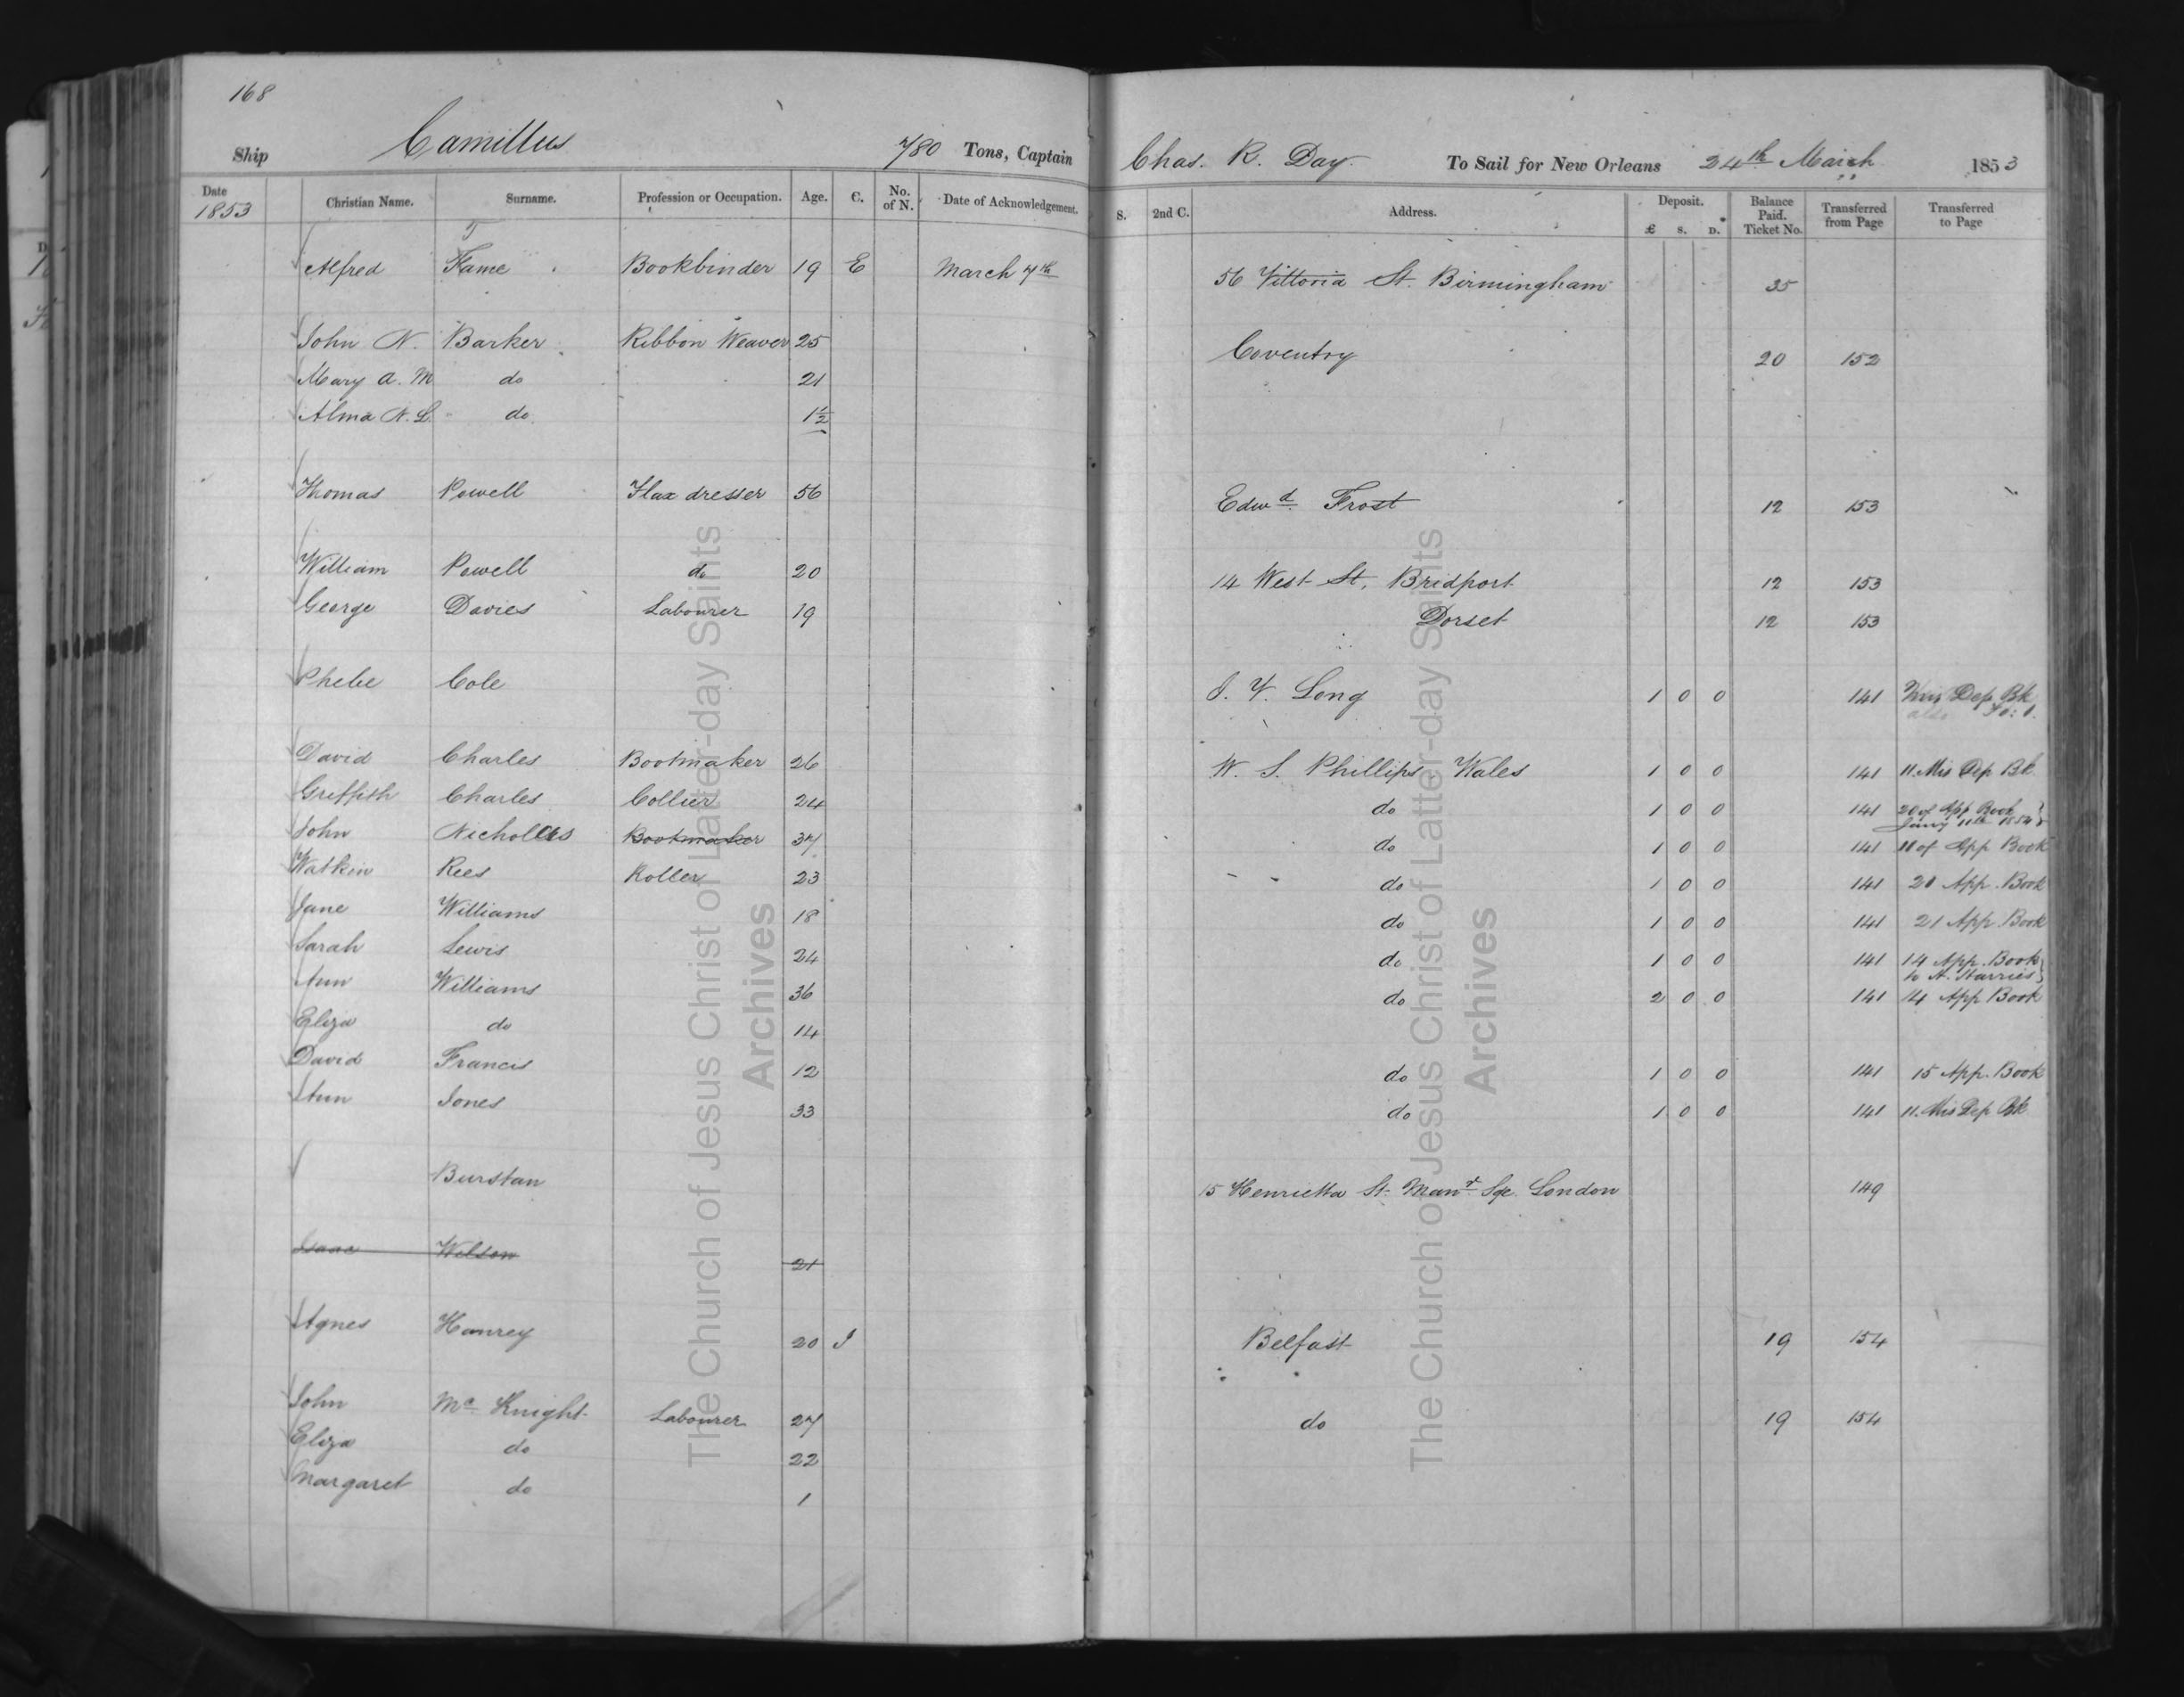 168
Ship Camillus 780 Tons, Captain Chas. R. Day. To Sail for New Orleans 24th March 1853
Date 1853 Christian Name. Surname. Profession or Occupation. Age. C. No. of N. Date of Acknowledgement. S. 2nd C. Address. Deposit. £ S. D. Balance Paid. Ticket No. Transferred from Page Transferred to Page
Alfred Fame Bookbinder 19 E March 7th 56 Vittoria St. Birmingham 35
John N. Barker Ribbon Weaver 25 Coventry 20 152
Mary A. M do 21
Alma N. L. do 1½
Thomas Powell Flax dresser 56 Edwd. Frost 12 153
William Powell do 20 14 West St. Bridport 12 153
George Davies Labourer 19 Dorset 12 153
Phebe Cole J. V. Long 1 0 0 141 Dep Bk
David Charles Bootmaker 26 W. S. Phillips Wales 1 0 0 141 11. Mis Dep Bk
Griffith Charles Collier 24 do 1 0 0 141 20 of App Book
Jany 11th 1854
John Nicholas Bootmaker 37 do 1 0 0 141 11 of App Book
Watkin Rees Roller 23 do 1 0 0 141 20 App. Book
Jane Williams 18 do 1 0 0 141 21 App. Book
Sarah Lewis 24 do 1 0 0 141 14 App. Book
to A. Harries
Ann Williams 36 do 2 0 0 141 14 App Book
Eliza do 14
David Francis 12 do 1 0 0 141 15 App. Book
Ann Jones 33 do 1 0 0 141 11. Mis Dep Bk
Burstan 15 Henrietta St. Manr. Sqe. London 149
Isaac Wilson 21
Agnes Hanrey 20 I Belfast 19 154
John Mc Knight Labourer 27 do 19 154
Eliza do 22
Margaret do 1
The Church of Jesus Christ of Latter-day Saints
Archives
The Church of Jesus Christ of Latter-day Saints
Archives